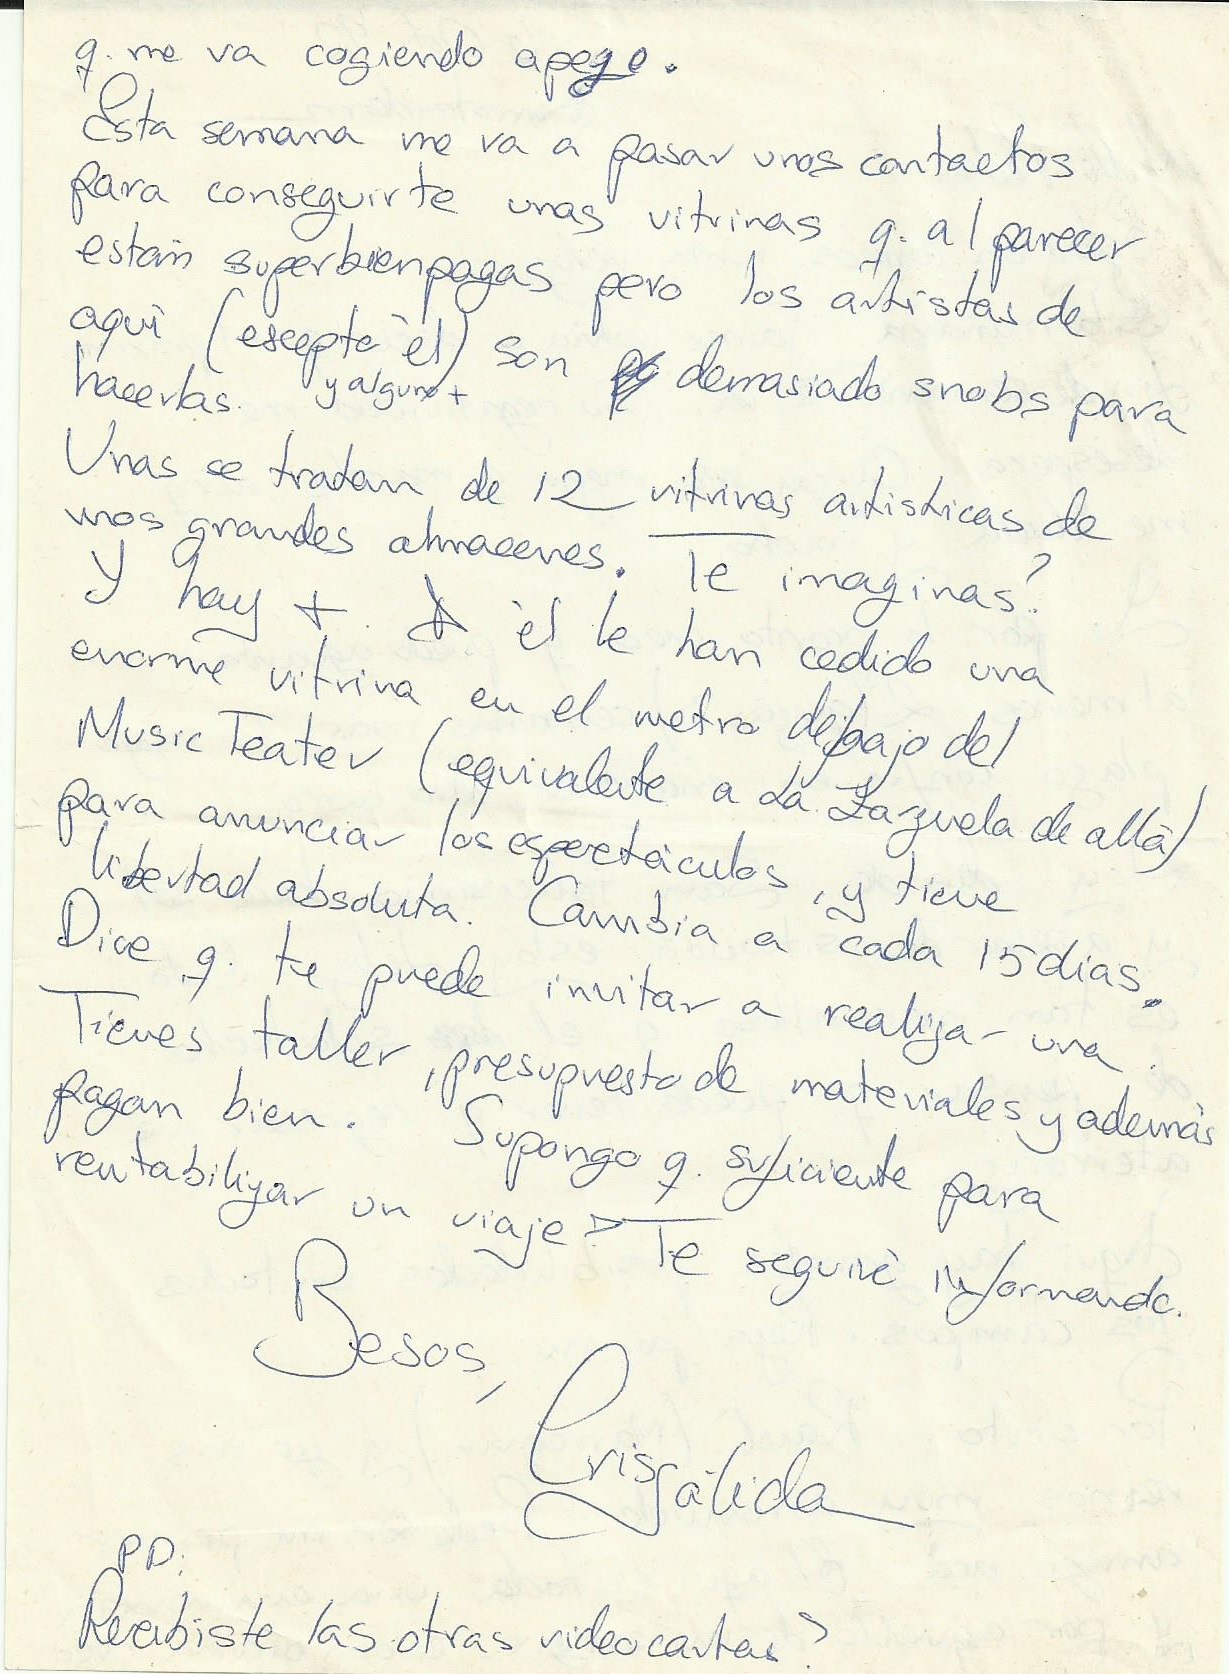 q. me va cogiendo apego.
Esta semana me va a pasar unos contactos
para conseguirte unas vitrinas q. al parecer
están superbienpagas pero los artistas de
aquì (escepto èl) son demasiado snobs para
y alguno +
hacerlas.
Unas se tratan de 12 vitrinas artisticas de
unos grandes almacenes. Te imaginas?
Y hay +. A èl le han cedido una
enorme vitrina en el metro debajo del
Music Teater (equivalente a La Zarzuela de allà)
para anunciar los espectáculos, y tiene
libertad absoluta. Cambia a cada 15 dias.
Dice q. te puede invitar a realizar una.
Tienes taller, presupuesto de materiales y ademàs
pagan bien. Supongo q. suficiente para
rentabilizar un viaje > Te seguirè informando.
Besos,
Crisàlida
PD:
Recibiste las otras videocartas?